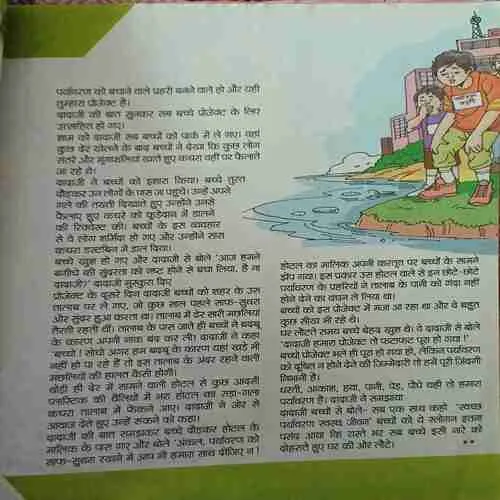 पर्यावरण को बचाने वाले प्रहरी बनने वाले हो और यही
तुम्हारा प्रोजेक्ट है।
दादाजी की बात सुनकर सब बच्चे प्रोजेक्ट के लिए
उत्साहित हो गए।
शाम को दादाजी सब बच्चों को पार्क में ले गए। वहां
कुछ देर खेलने के बाद बच्चों ने देखा कि कुछ लोग
संतरे और मूंगफलियां खाते हुए कचरा वहीं पर फैलाते
जा रहे थे।
दादाजी ने बच्चों को इशारा किया। बच्चे तुरत
दौड़कर उन लोगों के पास जा पहुंचे। उन्हें अपने
गले की तख्ती दिखाते हुए उन्होंने उनसे
फैलाए हुए कचरे को कूड़ेदान में डालने
की रिक्वेस्ट की। बच्चों के इस व्यवहार
से वे लोग शर्मिंदा हो गए और उन्होंने सारा
कचरा डस्टबिन में डाल दिया।
बच्चे खुश हो गए और दादाजी से बोले 'आज हमने
बगीचे की सुंदरता को नष्ट होने से बचा लिया, है ना
दादाजी?' दादाजी मुस्कुरा दिए
प्रोजेक्ट के दूसरे दिन दादाजी बच्चों को शहर के उस
तालाब पर ले गए, जो कुछ साल पहले साफ-सुथरा
और सुंदर हुआ करता था। तालाब में ढेर सारी मछलियां
तैरती रहती थीं। तालाब के पास जाते ही बच्चों ने बदबू
के कारण अपनी नाक बंद कर ली। दादाजी ने कहा
'बच्चो ! सोचो अगर हम बदबू के कारण यहां खड़े भी
नहीं हो पा रहे हैं तो इस तालाब के अंदर रहने वाली
मछलियों की हालत कैसी होगी।
थोड़ी ही देर में सामने वाली होटल से कुछ आदमी
प्लास्टिक की थैलियों में भरा होटल का सड़ा-गला
कचरा तालाब में फेंकने आए। दादाजी ने जोर से
आवाज देते हुए उन्हें रुकने को कहा।
दादाजी की बात समझकर बच्चे दौड़कर होटल के
मालिक के पास गए और बोले 'अंकल, पर्यावरण को
साफ-सुथरा रखने में आप भी हमारा साथ दीजिए न !
होटल का मालिक अपनी करतूत पर बच्चों के सामने
झेंप गया। इस प्रकार उस होटल वाले से इन छोटे-छोटे
पर्यावरण के प्रहरियों ने तालाब के पानी को गंदा नहीं
होने देने का वचन ले लिया था।
बच्चों को इस प्रोजेक्ट में मजा आ रहा था और वे बहुत
कुछ सीख भी रहे थे।
घर लौटते समय बच्चे बेहद खुश थे। वे दादाजी से बोले
'दादाजी हमारा प्रोजेक्ट तो फटाफट पूरा हो गया !'
बच्चो प्रोजेक्ट भले ही पूरा हो गया हो, लेकिन पर्यावरण
को दूषित न होने देने की जिम्मेदारी तो हमें पूरी जिंदगी
निभानी है।
धरती, आकाश, हवा, पानी, पेड़, पौधे यही तो हमारा
पर्यावरण है। दादाजी ने समझाया
दादाजी बच्चों से बोले- सब एक साथ कहो 'स्वच्छ
पर्यावरण स्वस्थ जीवन' बच्चों को ये स्लोगन इतना
पसंद आया कि रास्ते भर सब बच्चे इसी नारे को
दोहराते हुए घर की ओर लौटे।